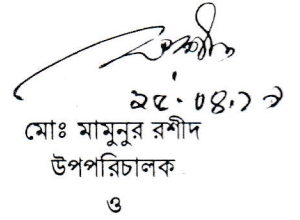 ২৫.০৪.১৯
মোঃ মামুনুর রশীদ
উপপরিচালক
ও